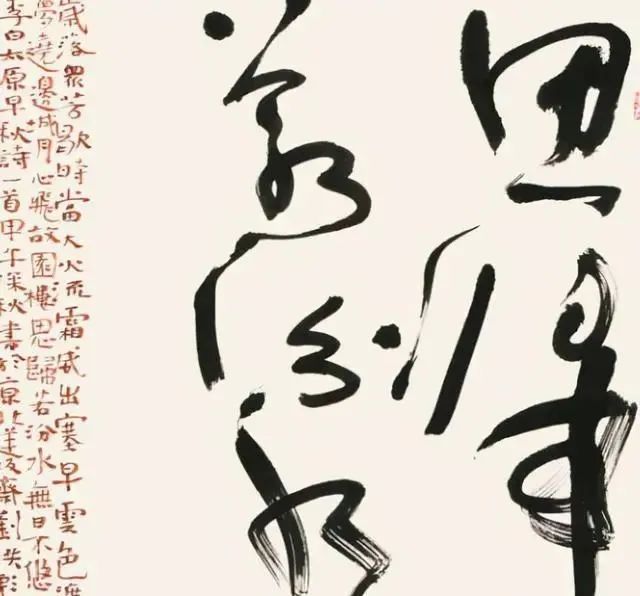 思歸
若汾水
歲落眾芳歇時當大火流霜威出塞早雲色渡
夢繞邊城月心飛故園樓思歸若汾水無日不悠
李白太原早秋詩一首甲午深秋書於京齋劉